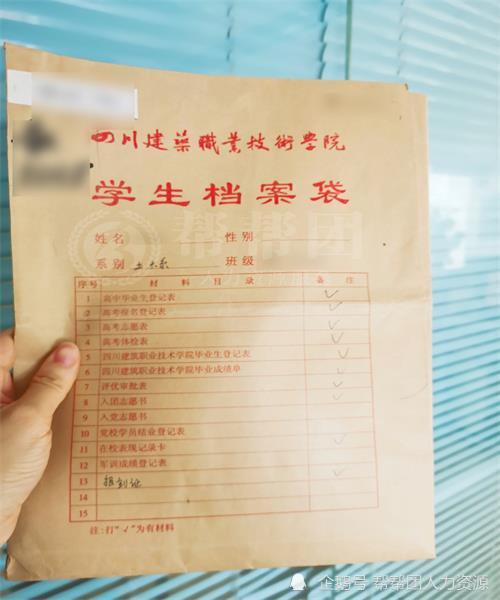 四川建築職業技術學院
学生档案袋
姓名 性别
系别 土木系 班级
序号 材料目录 备注
1 高中毕业生登记表 ✓
2 高考报名登记表 ✓
3 高考志愿表 ✓
4 高考体检表 ✓
5 四川建筑职业技术学院毕业生登记表 ✓
6 四川建筑职业技术学院毕业成绩单 ✓
7 评优审批表 ✓
8 入团志愿书 ✓
9 入党志愿书
10 党校学员结业登记表
11 在校表现记录卡 ✓
12 军训成绩登记表
13 报到证 ✓
14
15
注:打“√”为有材料
帮帮团
人力资源
企鹅号 帮帮团人力资源